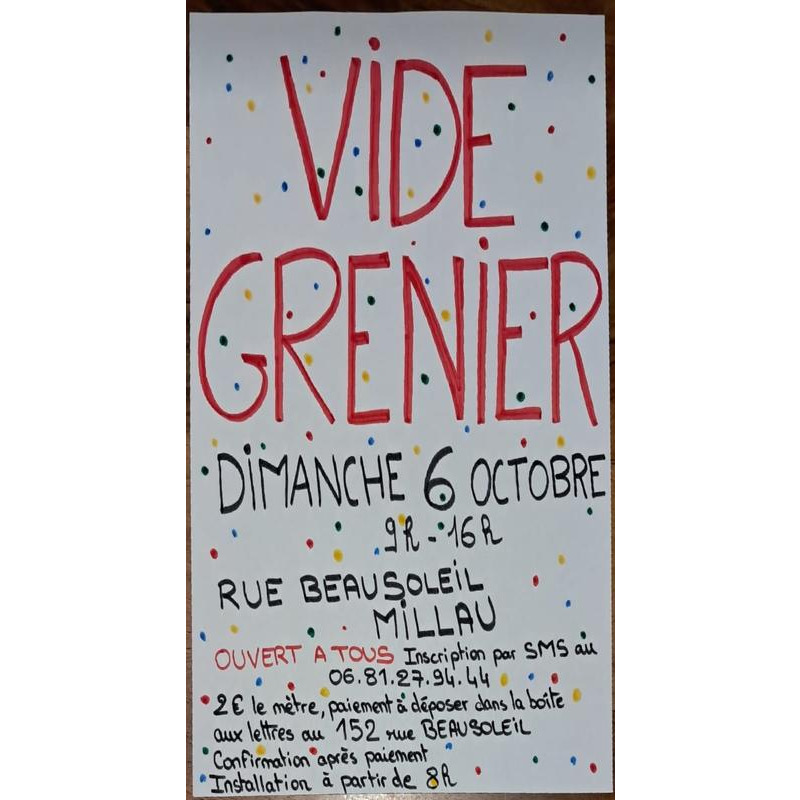 VIDE
GRENIER
DIMANCHE 6 OCTOBRE
9h-16h
RUE BEAUSOLEIL
MILLAU
OUVERT A TOUS Inscription par SMS au
06.81.27.94.44
2€ le mètre, paiement à déposer dans la boîte
aux lettres au 152 rue BEAUSOLEIL
Confirmation après paiement
Installation à partir de 8h